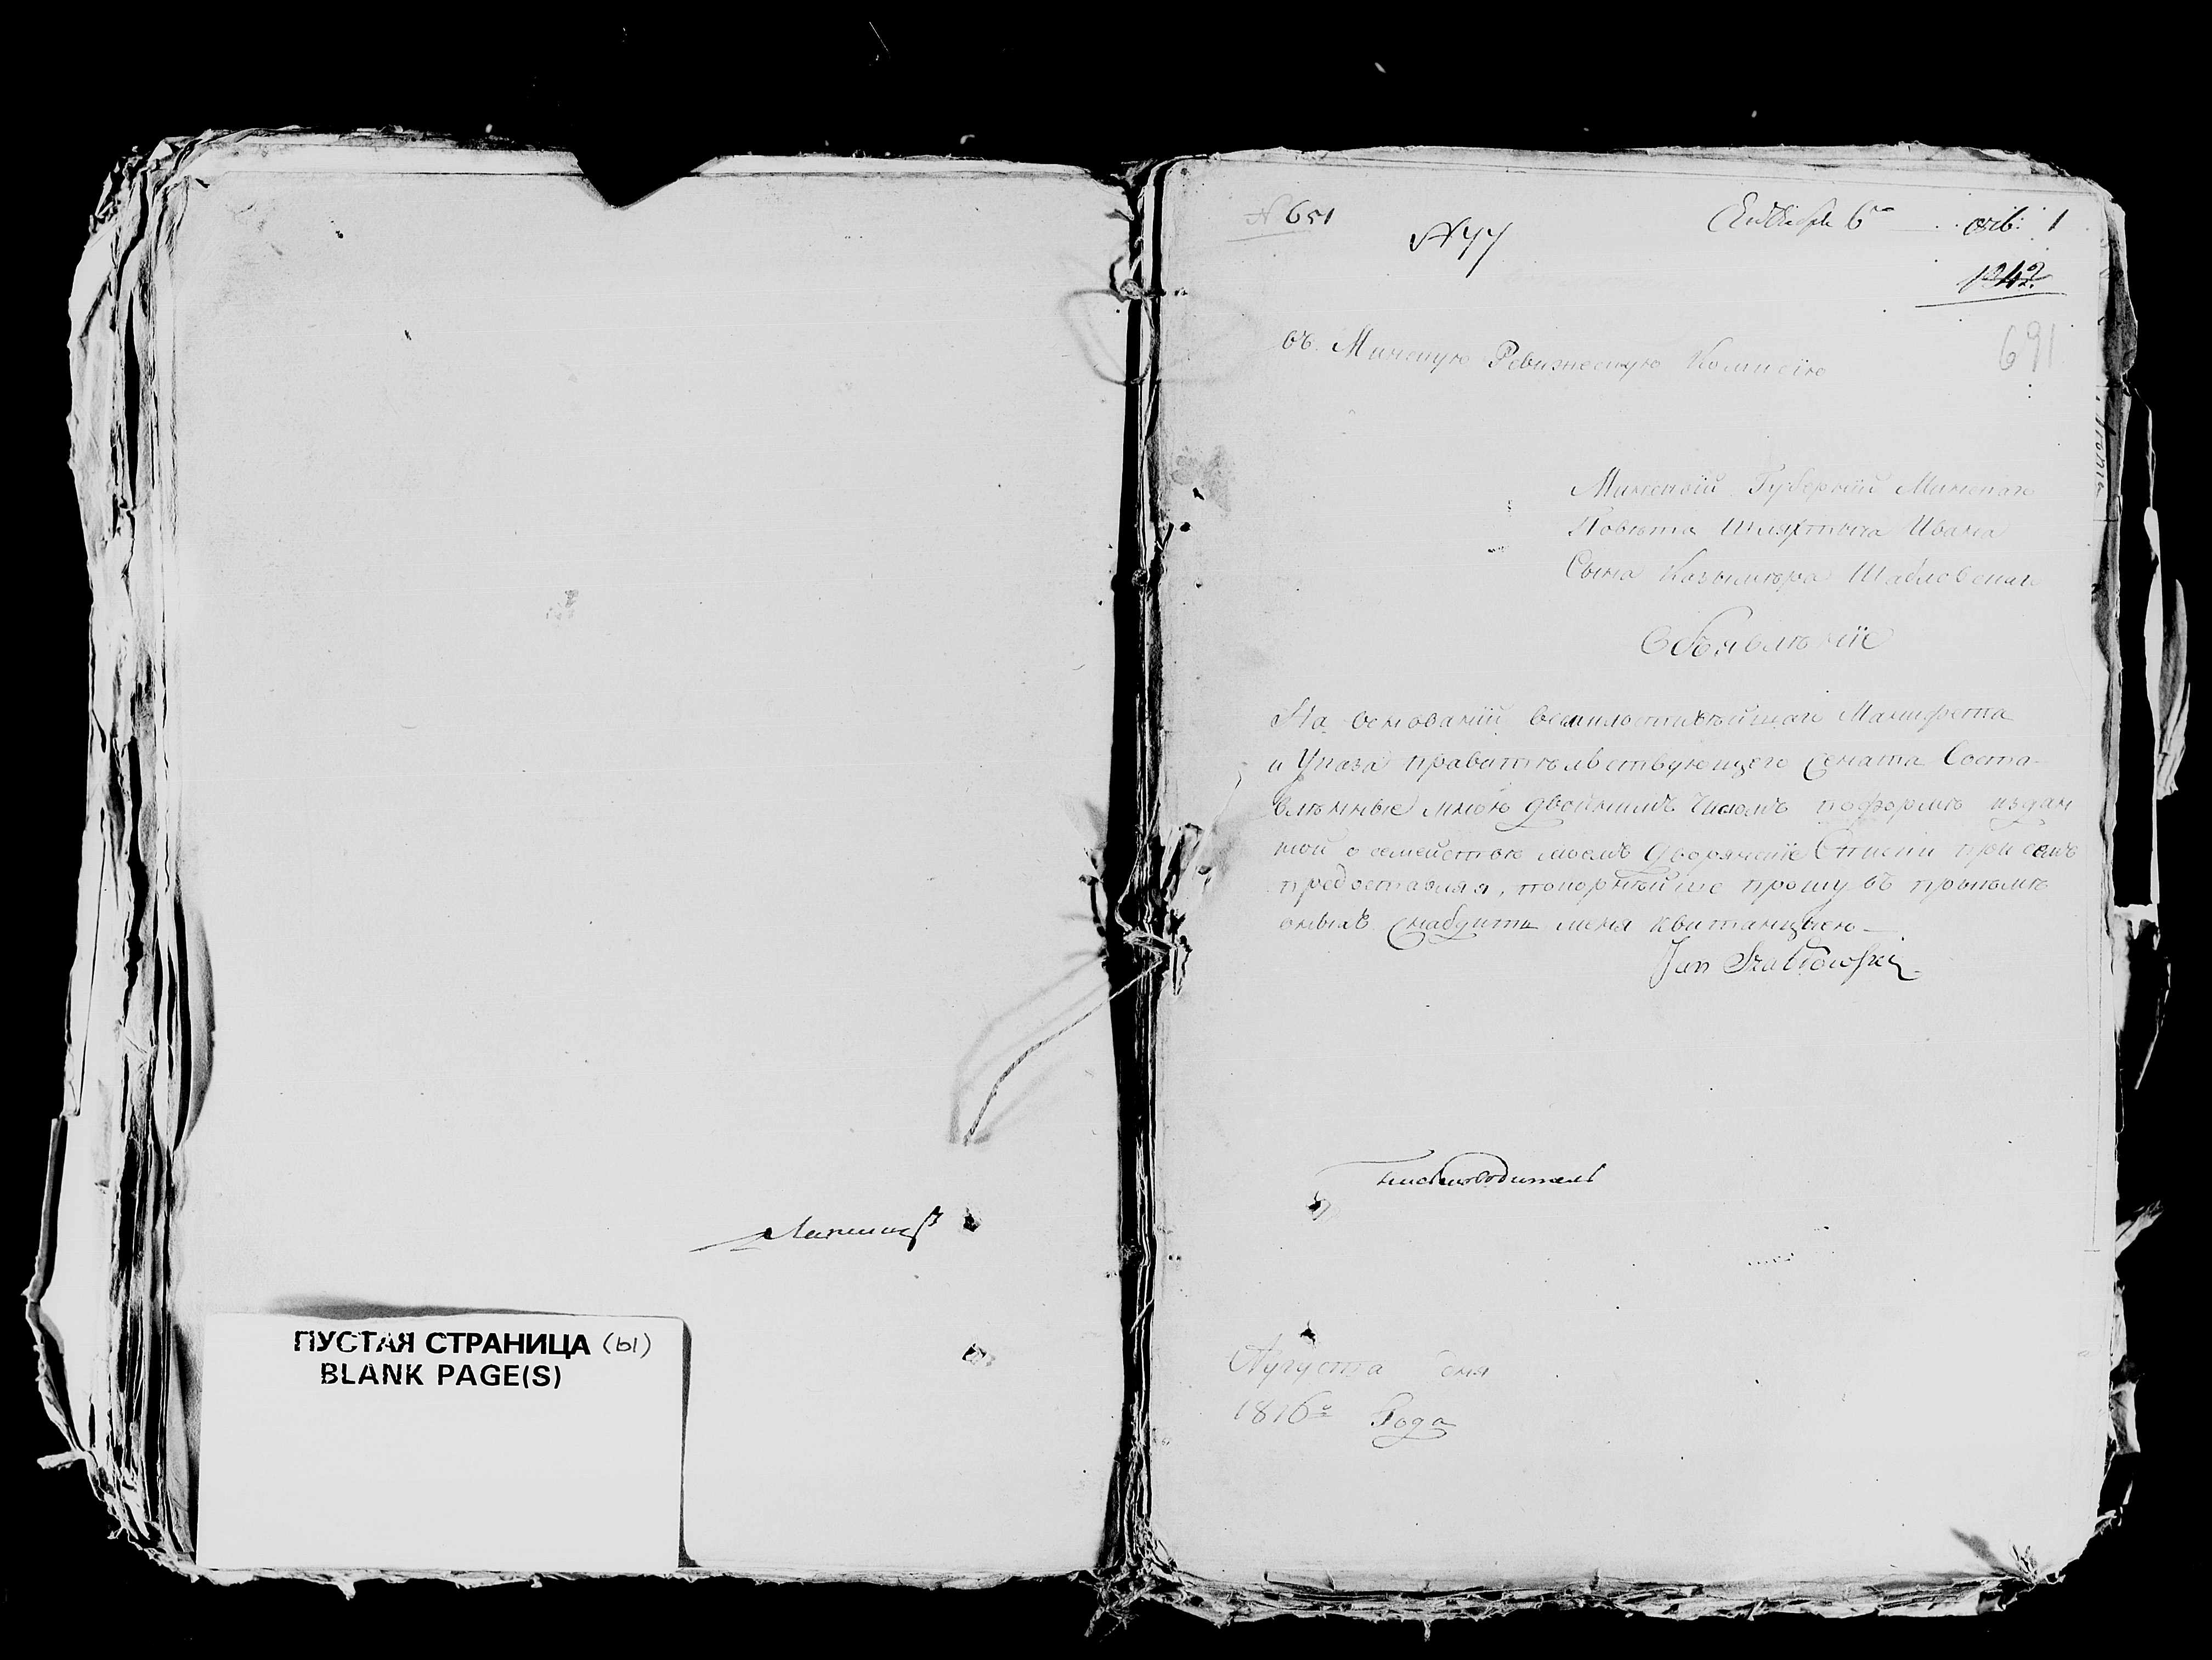 ПУСТАЯ СТРАНИЦА (ы)
BLANK PAGE(S)
№ 651
№ 77
6го
1
1242
691
въ Минскую Ревизскую Комисію
Минской Губерніи Минскаго
Повѣта Шляхтича Ивана
Сына Казымѣра Шабловскаго
Объявлѣніе
На основаніи всемилостивѣйшаго Манифеста
и Указа правитѣльствующего Сената Соста-
влѣнные мною двойнымъ числомъ по формѣ издан
ной о семействѣ моемъ Дворянскіе Списки при семъ
предоставляя, покорнѣйше прошу въ прыемѣ
оныхъ снабдить меня квитанцыею —
Jan Szabłowski
Письмоводитель
Августа дня
1816го Года